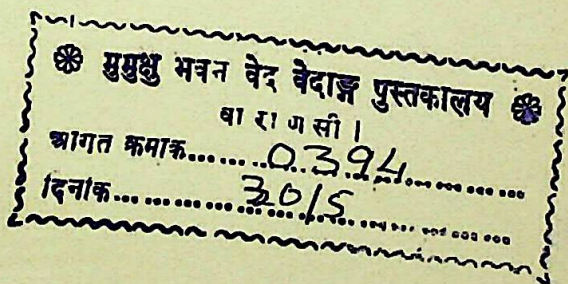 ❀ मुमुक्षु भवन वेद वेदाङ्ग पुस्तकालय ❀
वा रा ण सी ।
आगत क्रमाक......0394..............
दिनांक............30/5..............